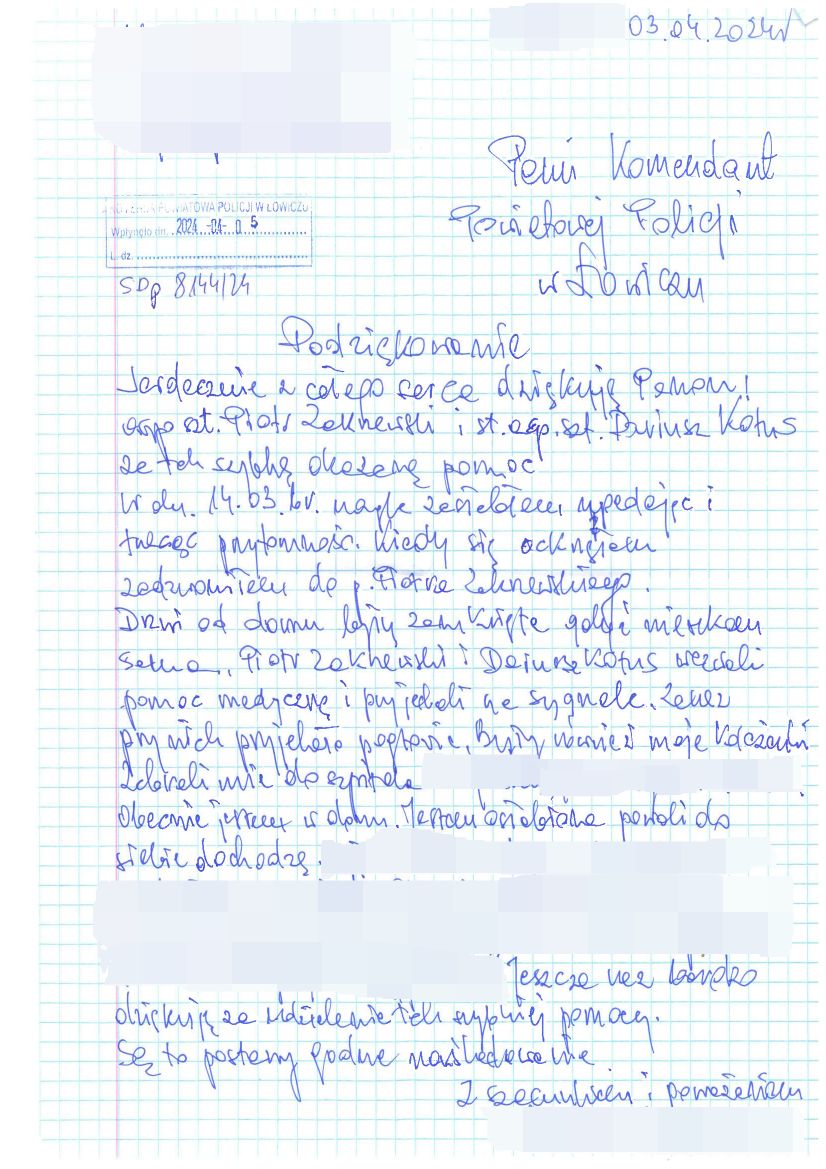 03.04.2024r
Pani Komendant
Powiatowej Policji
w Łowiczu
KOMENDA POWIATOWA POLICJI W ŁOWICZU
Wpłynęło dn. 2024 -04- 0 5
L. dz.
SDp 8144/24
Podziękowanie
Serdecznie z całego serca dziękuję Panom!
asp. szt. Piotr Zaknewski i st. asp. szt. Dariusz Kotus
za tak szybką okazaną pomoc
W dn. 14.03.br. nagle zasłabłam upadając i
tracąc przytomność. Kiedy się ocknęłam
zadzwoniłam do p. Piotra Zaknewskiego.
Drzwi od domu były zamknięte gdyż mieszkam
sama, Piotr Zaknewski i Dariusz Kotus wezwali
pomoc medyczną i przyjechali na sygnale. Zaraz
przy nich przyjechało pogotowie. Były również moje Koleżanki
Zabrali mnie do szpitala
Obecnie jestem w domu. Jestem osłabiona powoli do
siebie dochodzę.
Jeszcze raz bardzo
dziękuję za udzielenie tak szybkiej pomocy.
Są to postawy godne naśladowania
Z szacunkiem i poważaniem